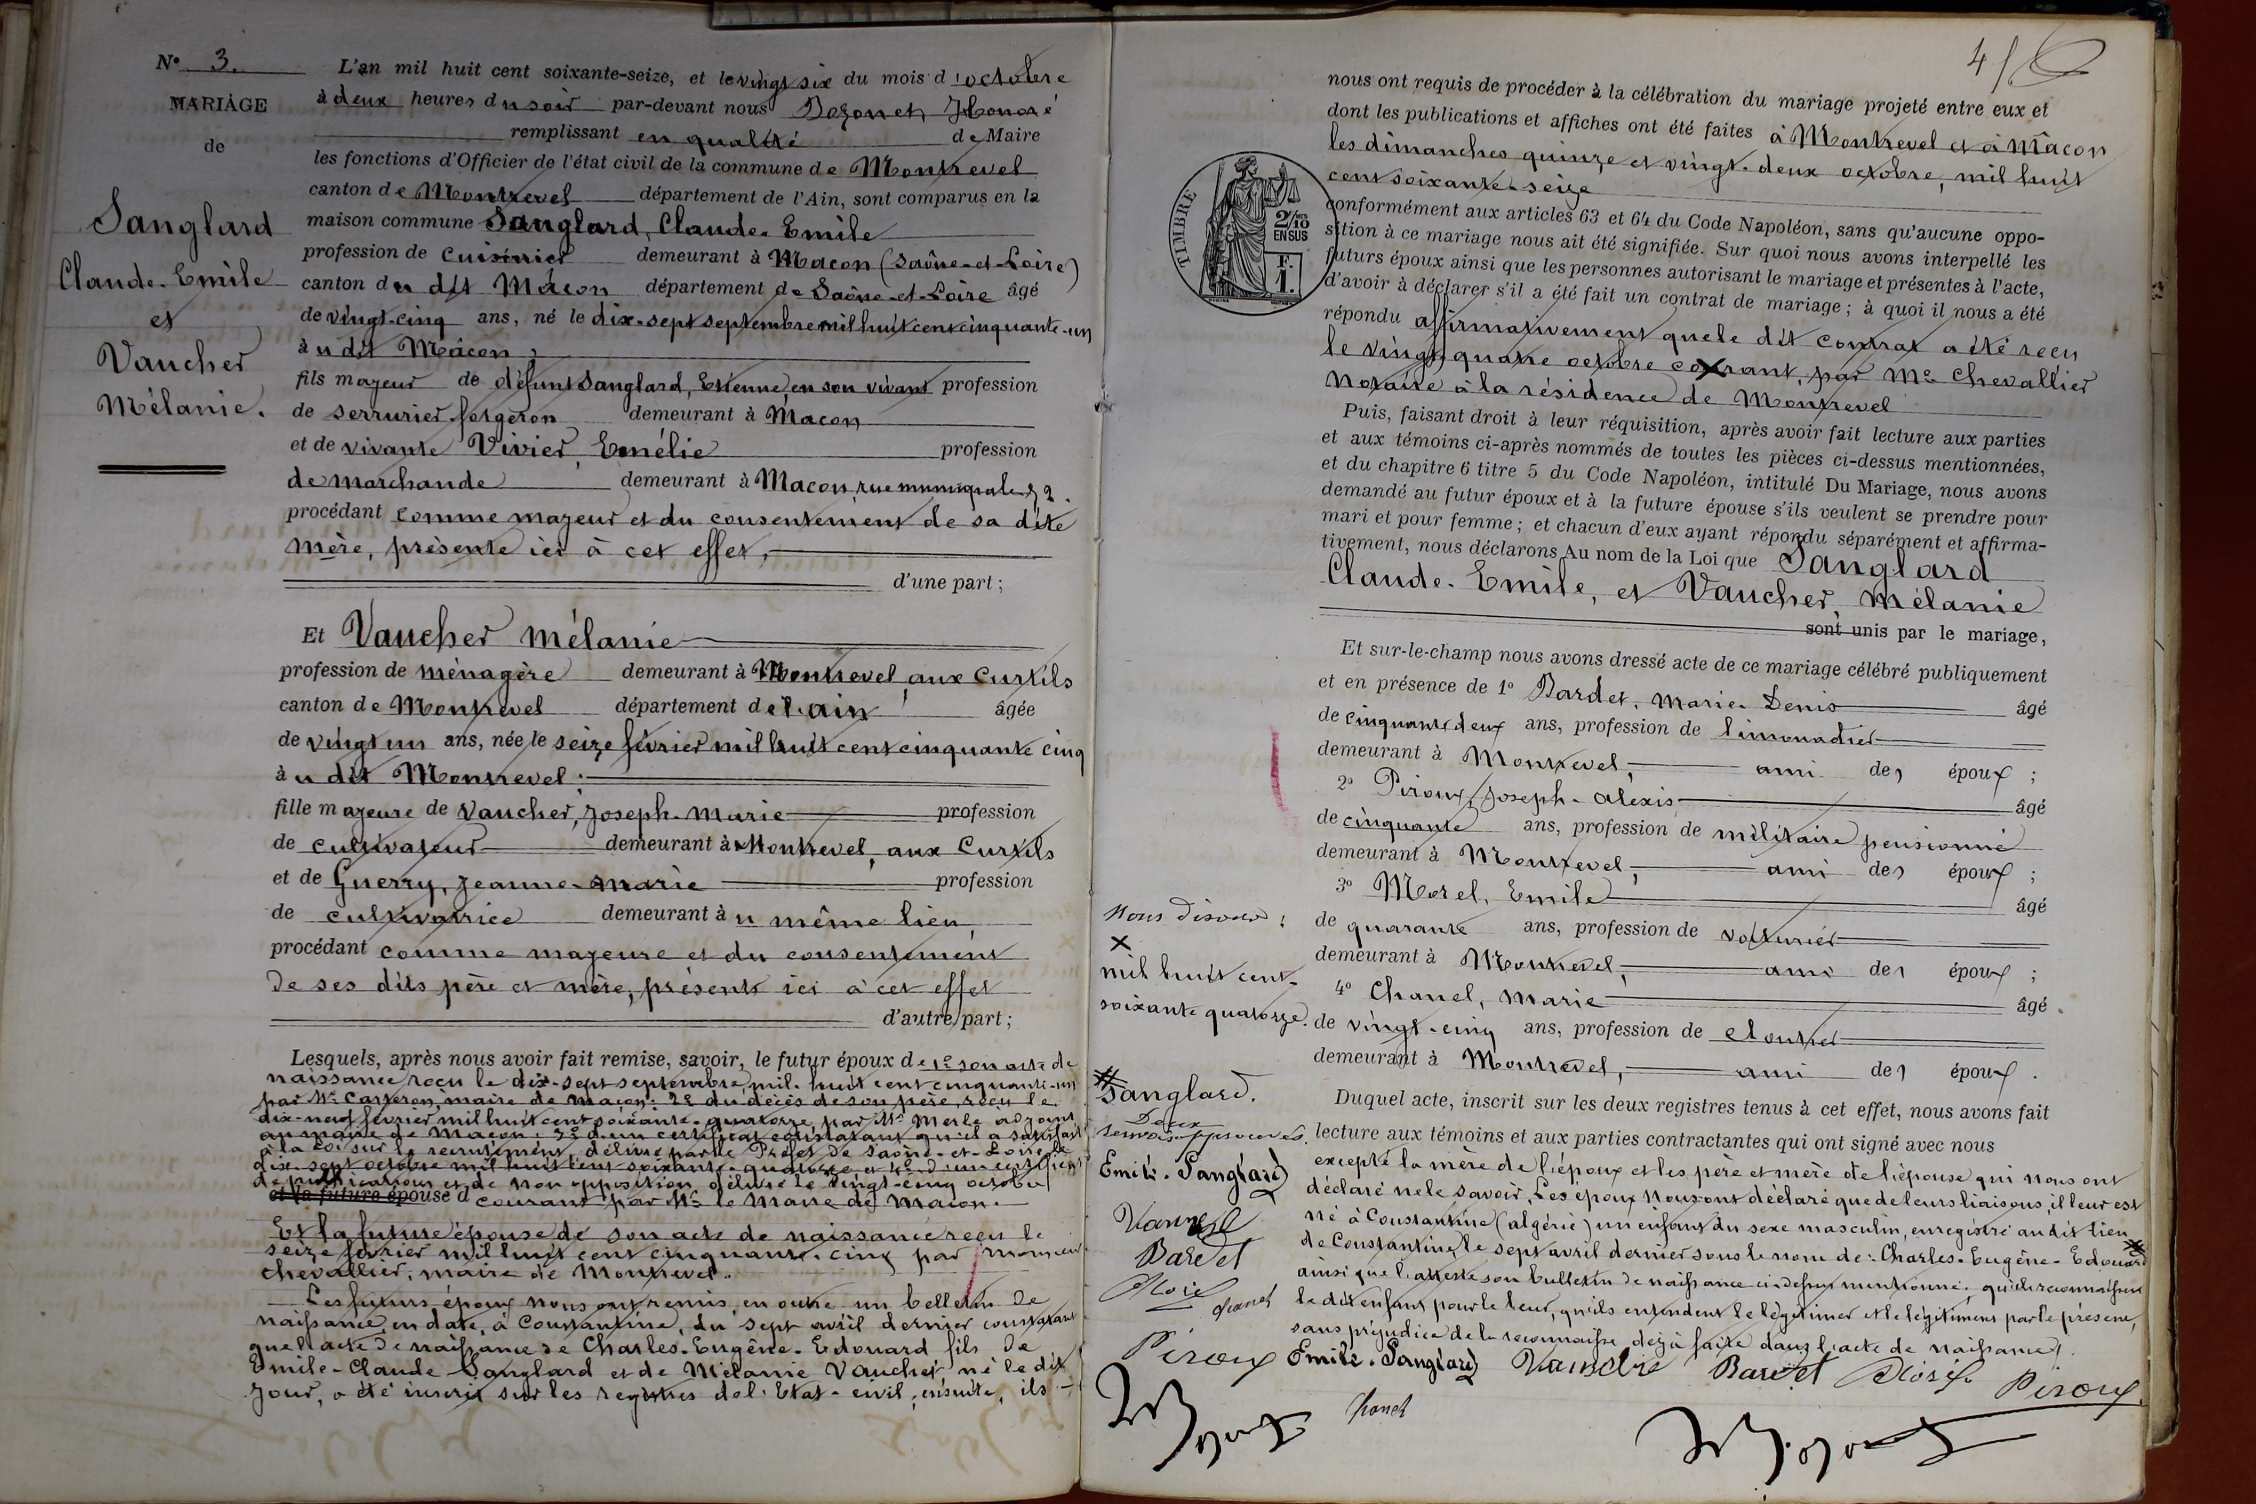 N° 3.
MARIAGE
de
Sanglard
Claude-Emile
et
Vaucher
Mélanie.
L'an mil huit cent soixante-seize, et le vingt six du mois d'octobre
à deux heures du soir par-devant nous Honoré
remplissant en qualité de Maire
les fonctions d'Officier de l'état civil de la commune de Montrevel
canton de Montrevel département de l'Ain, sont comparus en la
maison commune Sanglard, Claude-Emile
profession de cuisinier demeurant à Macon (Saône-et-Loire)
canton du dit Mâcon département de Saône-et-Loire âgé
de vingt-cinq ans, né le dix-sept septembre mil huit cent cinquante-un
à u dit Mâcon,
fils majeur de défunt Sanglard, Etienne, en son vivant profession
de serrurier-forgeron demeurant à Macon
et de vivante Vivier, Emélie profession
de marchande demeurant à Macon, rue municipale, 52.
procédant comme majeur et du consentement de sa dite
mère, présente ici à cet effet,
d'une part;
Et Vaucher Mélanie
profession de ménagère demeurant à Montrevel, aux Curtils
canton de Montrevel département de l'ain âgée
de vingt un ans, née le seize février mil huit cent cinquante cinq
à u dit Montrevel;
fille majeure de Vaucher, Joseph-Marie profession
de cultivateur demeurant à Montrevel, aux Curtils
et de Guerry, Jeanne-Marie profession
de cultivatrice demeurant à u même lieu,
procédant comme majeure et du consentement
de ses dits père et mère, présents ici à cet effet
d'autre part;
Lesquels, après nous avoir fait remise, savoir, le futur époux de 1° son acte de
naissance reçu le dix-sept septembre mil-huit cent cinquante-un
par Mr maire de Macon: 2° du décès de son père, reçu le
dix-neuf février mil huit cent soixante-quatorze, par Mr Merle adjoint
au maire de Macon: 3° d'un certificat constatant qu'il a satisfait
à la loi sur le recrutement, délivré par le Préfet de Saône-et-Loire le
dix-sept octobre mil huit cent soixante-quatorze et 4° d'un certificat
de publication et de non opposition délivré le vingt-cinq octobre
et la future épouse d courant par Mr le Maire de Macon.
Et la future épouse de son acte de naissance reçu le
seize février mil huit cent cinquante-cinq par monsieur
Chevallier, maire de Montrevel.
Les futurs époux nous ont remis, en outre un bulletin de
naissance, en date, à Constantine, du sept avril dernier constatant
que l'acte de naissance de Charles-Eugène-Edouard fils de
Emile-Claude Sanglard et de Mélanie Vaucher, né le dit
jour, a été inscrit sur les registres de l'Etat-civil; ensuite, ils
4
nous ont requis de procéder à la célébration du mariage projeté entre eux et
dont les publications et affiches ont été faites à Montrevel et à Mâcon
les dimanches quinze et vingt-deux octobre, mil huit
cent soixante-seize
TIMBRE
2/10 EN SUS
F. 1.
conformément aux articles 63 et 64 du Code Napoléon, sans qu'aucune oppo-
sition à ce mariage nous ait été signifiée. Sur quoi nous avons interpellé les
futurs époux ainsi que les personnes autorisant le mariage et présentes à l'acte,
d'avoir à déclarer s'il a été fait un contrat de mariage; à quoi il nous a été
répondu affirmativement que le dit contrat a été reçu
le vingt quatre octobre courant, par Me Chevallier
Notaire à la résidence de Montrevel
Puis, faisant droit à leur réquisition, après avoir fait lecture aux parties
et aux témoins ci-après nommés de toutes les pièces ci-dessus mentionnées,
et du chapitre 6 titre 5 du Code Napoléon, intitulé Du Mariage, nous avons
demandé au futur époux et à la future épouse s'ils veulent se prendre pour
mari et pour femme; et chacun d'eux ayant répondu séparément et affirma-
tivement, nous déclarons Au nom de la Loi que Sanglard
Claude-Emile, et Vaucher, Mélanie
sont unis par le mariage,
Et sur-le-champ nous avons dressé acte de ce mariage célébré publiquement
et en présence de 1° Bardet, Marie-Denis âgé
de cinquante deux ans, profession de limonadier
demeurant à Montrevel, ami des époux;
2° Piroux, Joseph-Alexis âgé
de cinquante ans, profession de militaire pensionné
demeurant à Montrevel, ami des époux;
3° Morel, Emile âgé
de quarante ans, profession de voiturier
demeurant à Montrevel, ami des époux;
4° Chanel, Marie âgé
de vingt-cinq ans, profession de cloutier
demeurant à Montrevel, ami des époux.
Duquel acte, inscrit sur les deux registres tenus à cet effet, nous avons fait
lecture aux témoins et aux parties contractantes qui ont signé avec nous
excepté la mère de l'époux et les père et mère de l'épouse qui nous ont
déclaré ne le savoir. Les époux nous ont déclaré que de leurs liaisons, il leur est
né à Constantine (algérie) un enfant du sexe masculin, enregistré au dit lieu
de Constantine, le sept avril dernier sous le nom de: Charles-Eugène-Edouard
ainsi que l'atteste son bulletin de naissance ci-dessus mentionné; qu'ils reconnaissent
le dit enfant pour le leur, qu'ils entendent le légitimer et le légitiment par le présent,
sans préjudice de la reconnaissce déjà faite dans l'acte de naissance.
Emile. Sanglard Vaucher Bardet Piroux
Chanel
Nous disons:
X
mil huit cent-
soixante quatorze.
Sanglard.
Deux
renvois approuvés.
Emile. Sanglard
Bardet
Chanel
Piroux